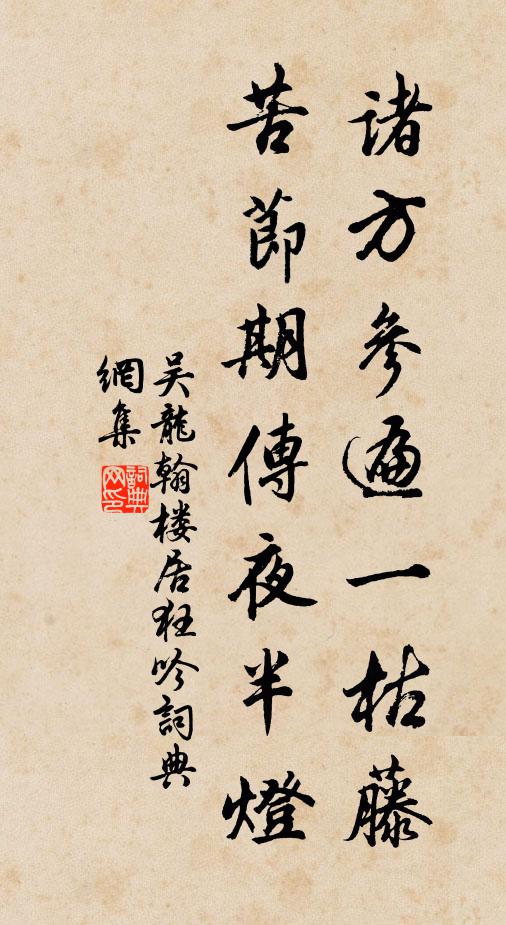 諸方參遍一枯藤
苦節期傳夜半燈
吴龍翰楼居狂吟詞典
網集
詞典網印